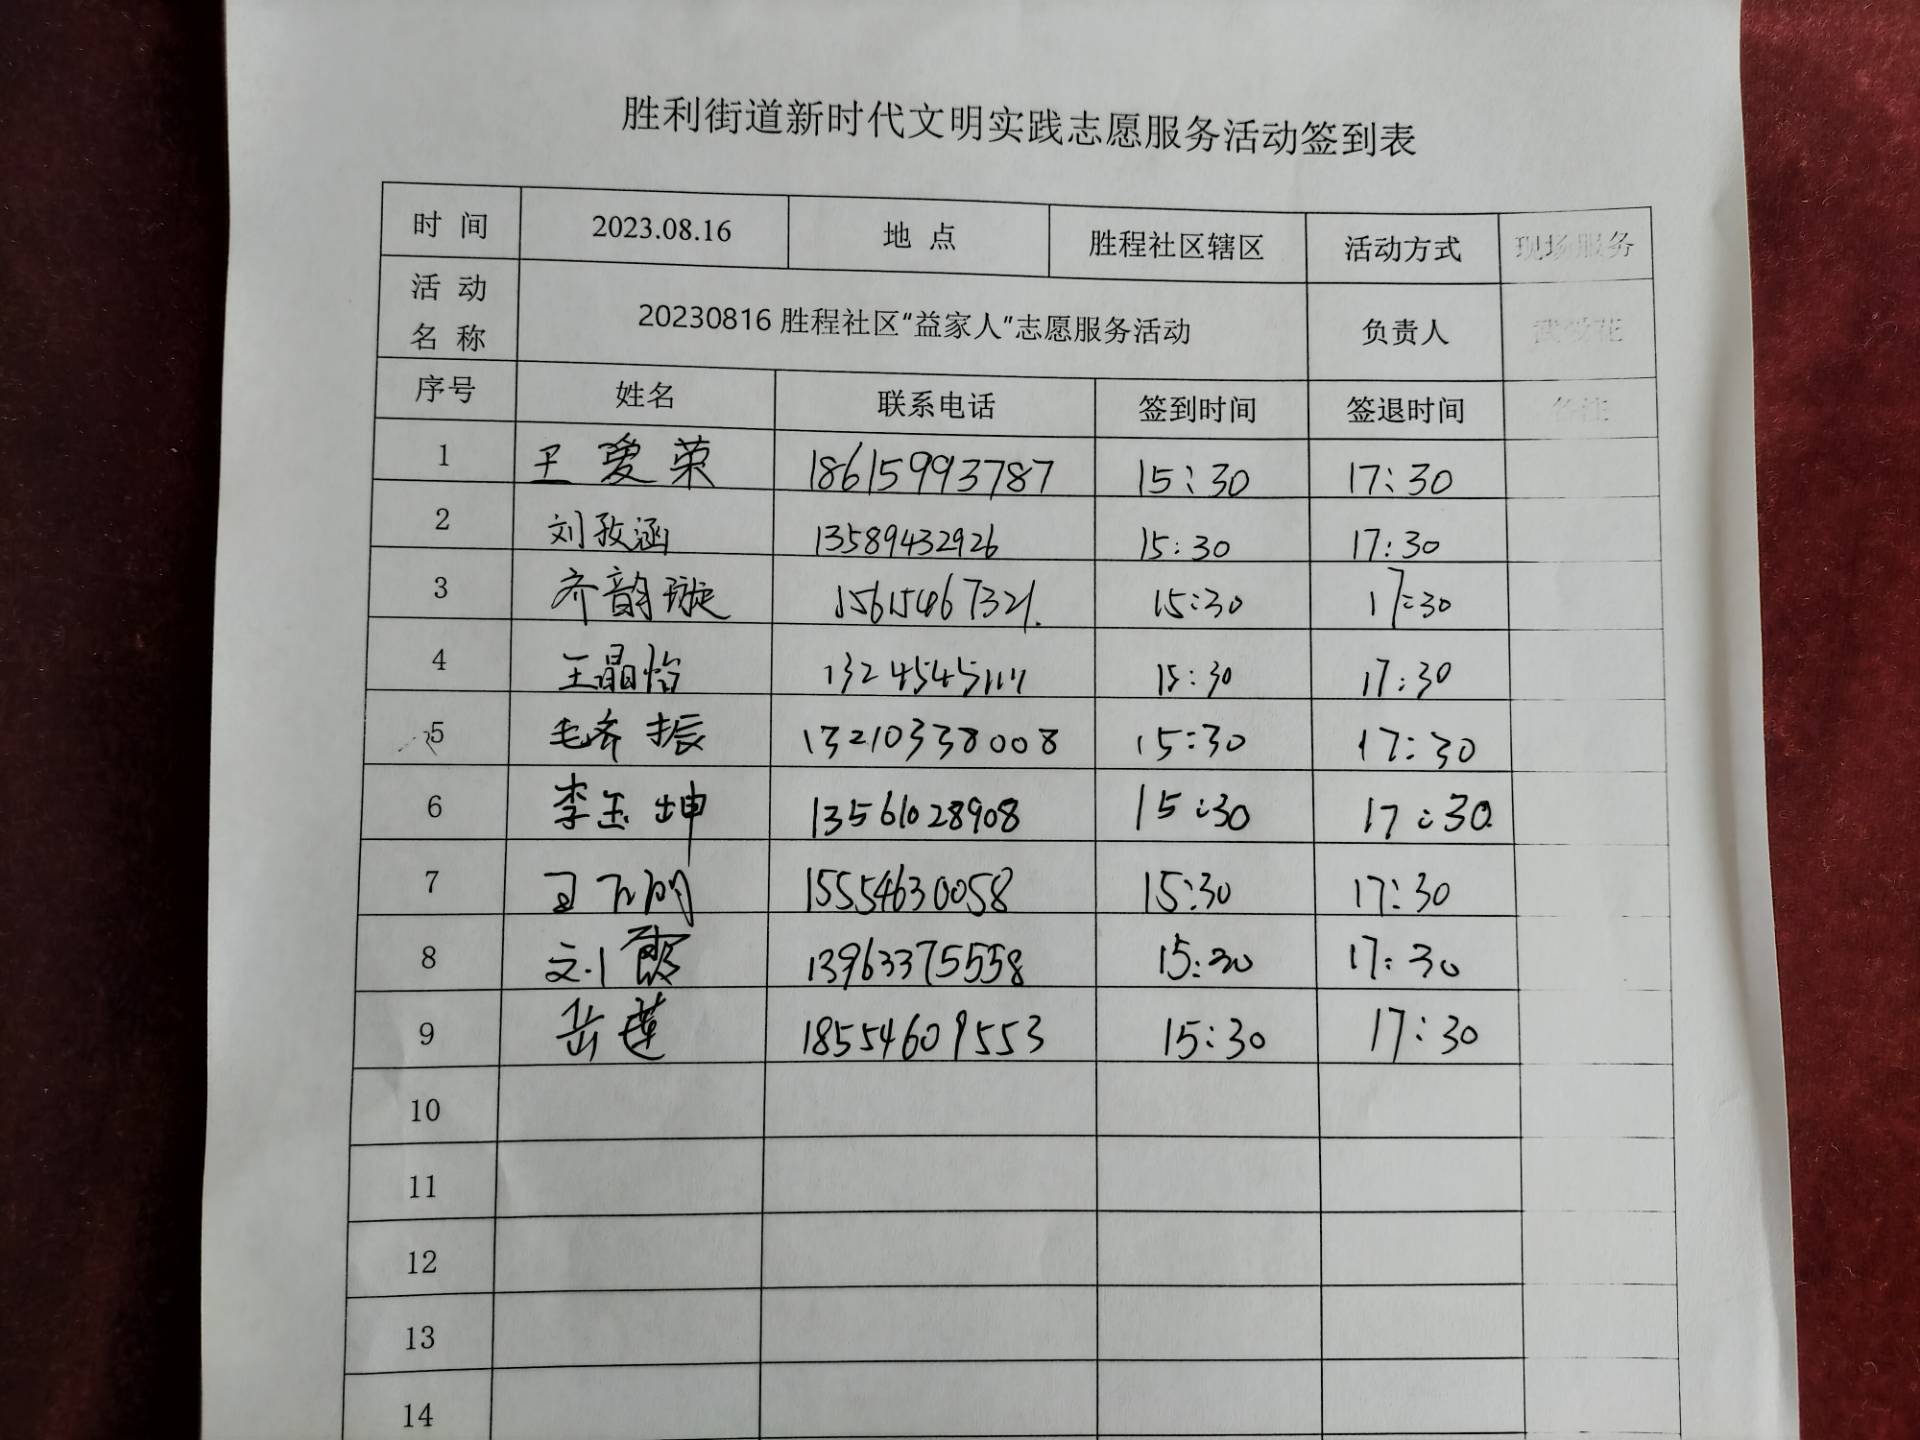 胜利街道新时代文明实践志愿服务活动签到表
时 间 2023.08.16 地 点 胜程社区辖区 活动方式 现场服务
活 动
名 称 20230816 胜程社区“益家人”志愿服务活动 负责人
序号 姓名 联系电话 签到时间 签退时间 备注
1 王爱荣 18615993787 15:30 17:30
2 刘孜涵 13589432926 15:30 17:30
3 齐韵璇 15615467321. 15:30 17:30
4 王晶怡 13245451111 15:30 17:30
5 毛希振 13210338008 15:30 17:30
6 李玉坤 13561028908 15:30 17:30
7 15554630058 15:30 17:30
8 13963375558 15:30 17:30
9 岳莲 18554609553 15:30 17:30
10
11
12
13
14